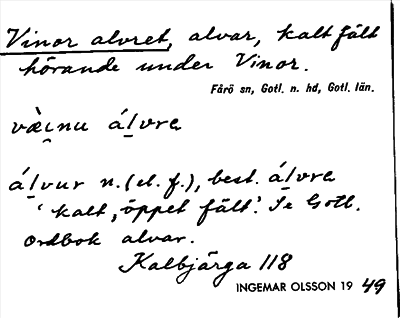 Vinor alvret, alvar, kalt fält
hörande under Vinor.
Fårö sn, Gotl. n. hd, Gotl. län.
vὲi̯nu ál̲vrɐ
ál̲vur n. (el. f.), best. ál̲vrɐ
'kalt, öppet fält'. Se Gotl.
ordbok alvar.
Kalbjärga 118
INGEMAR OLSSON 19 49